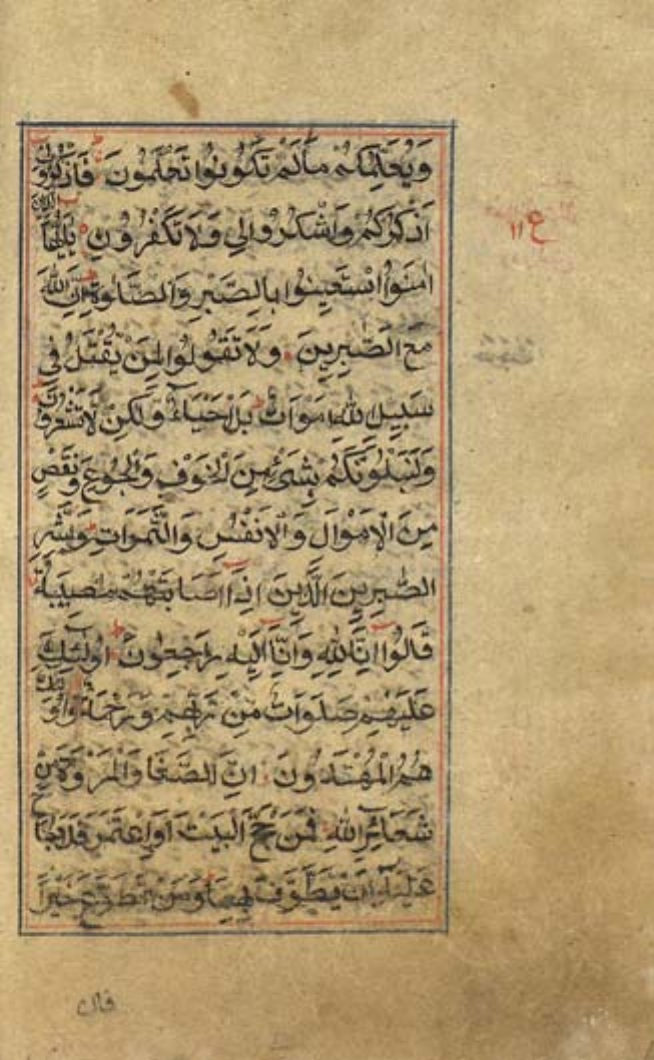 وَيُعَلِّمُكُمْ مَا لَمْ تَكُونُوا تَعْلَمُونَ فَاذْكُرُونِي
اَذْكُرْكُمْ وَاشْكُرُوا لِي وَلَا تَكْفُرُونِ يَاَيُّهَا الَّذِينَ
اٰمَنُوا اسْتَعِينُوا بِالصَّبْرِ وَالصَّلٰوةِ اِنَّ اللّٰهَ
مَعَ الصّٰبِرِينَ وَلَا تَقُولُوا لِمَنْ يُقْتَلُ فِي
سَبِيلِ اللّٰهِ اَمْوَاتٌ بَلْ اَحْيَاءٌ وَلٰكِنْ لَا تَشْعُرُونَ
وَلَنَبْلُوَنَّكُمْ بِشَيْءٍ مِنَ الْخَوْفِ وَالْجُوعِ وَنَقْصٍ
مِنَ الْاَمْوَالِ وَالْاَنْفُسِ وَالثَّمَرَاتِ وَبَشِّرِ
الصّٰبِرِينَ الَّذِينَ اِذَا اَصَابَتْهُمْ مُصِيبَةٌ
قَالُوا اِنَّا لِلّٰهِ وَاِنَّا اِلَيْهِ رَاجِعُونَ اُولٰئِكَ
عَلَيْهِمْ صَلَوَاتٌ مِنْ رَبِّهِمْ وَرَحْمَةٌ وَاُولٰئِكَ
هُمُ الْمُهْتَدُونَ اِنَّ الصَّفَا وَالْمَرْوَةَ مِنْ
شَعَائِرِ اللّٰهِ فَمَنْ حَجَّ الْبَيْتَ اَوِ اعْتَمَرَ فَلَا جُنَاحَ
عَلَيْهِ اَنْ يَطَّوَّفَ بِهِمَا وَمَنْ تَطَوَّعَ خَيْرًا
ع ١١
فان